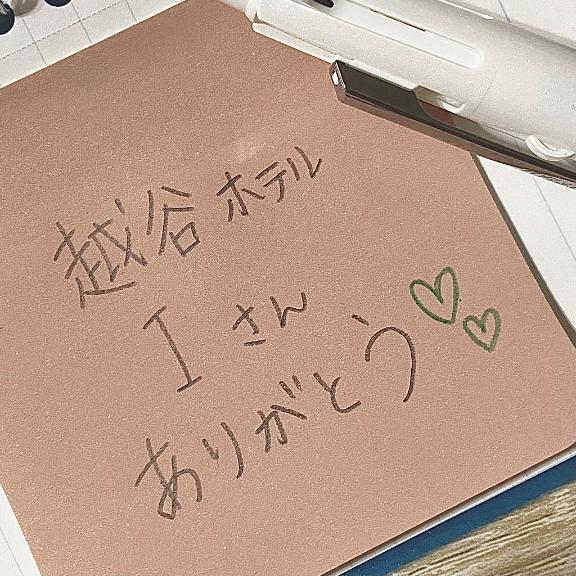 越谷ホテル
Iさん
ありがとう♡♡